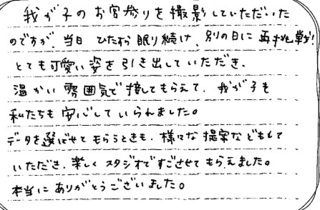 我が子のお宮参りを撮影していただいた
のですが当日ひたすら眠り続け、別の日に再すれ撮影!
とても可愛い姿を引き出していただき、
温かい雰囲気で接してもらえて、我が子も
私たちも安心していられました。
データを選ばせてもらうときも、様々な提案などもして
いただき、楽しくスタジオですごさせてもらえました。
本当にありがとうございました。